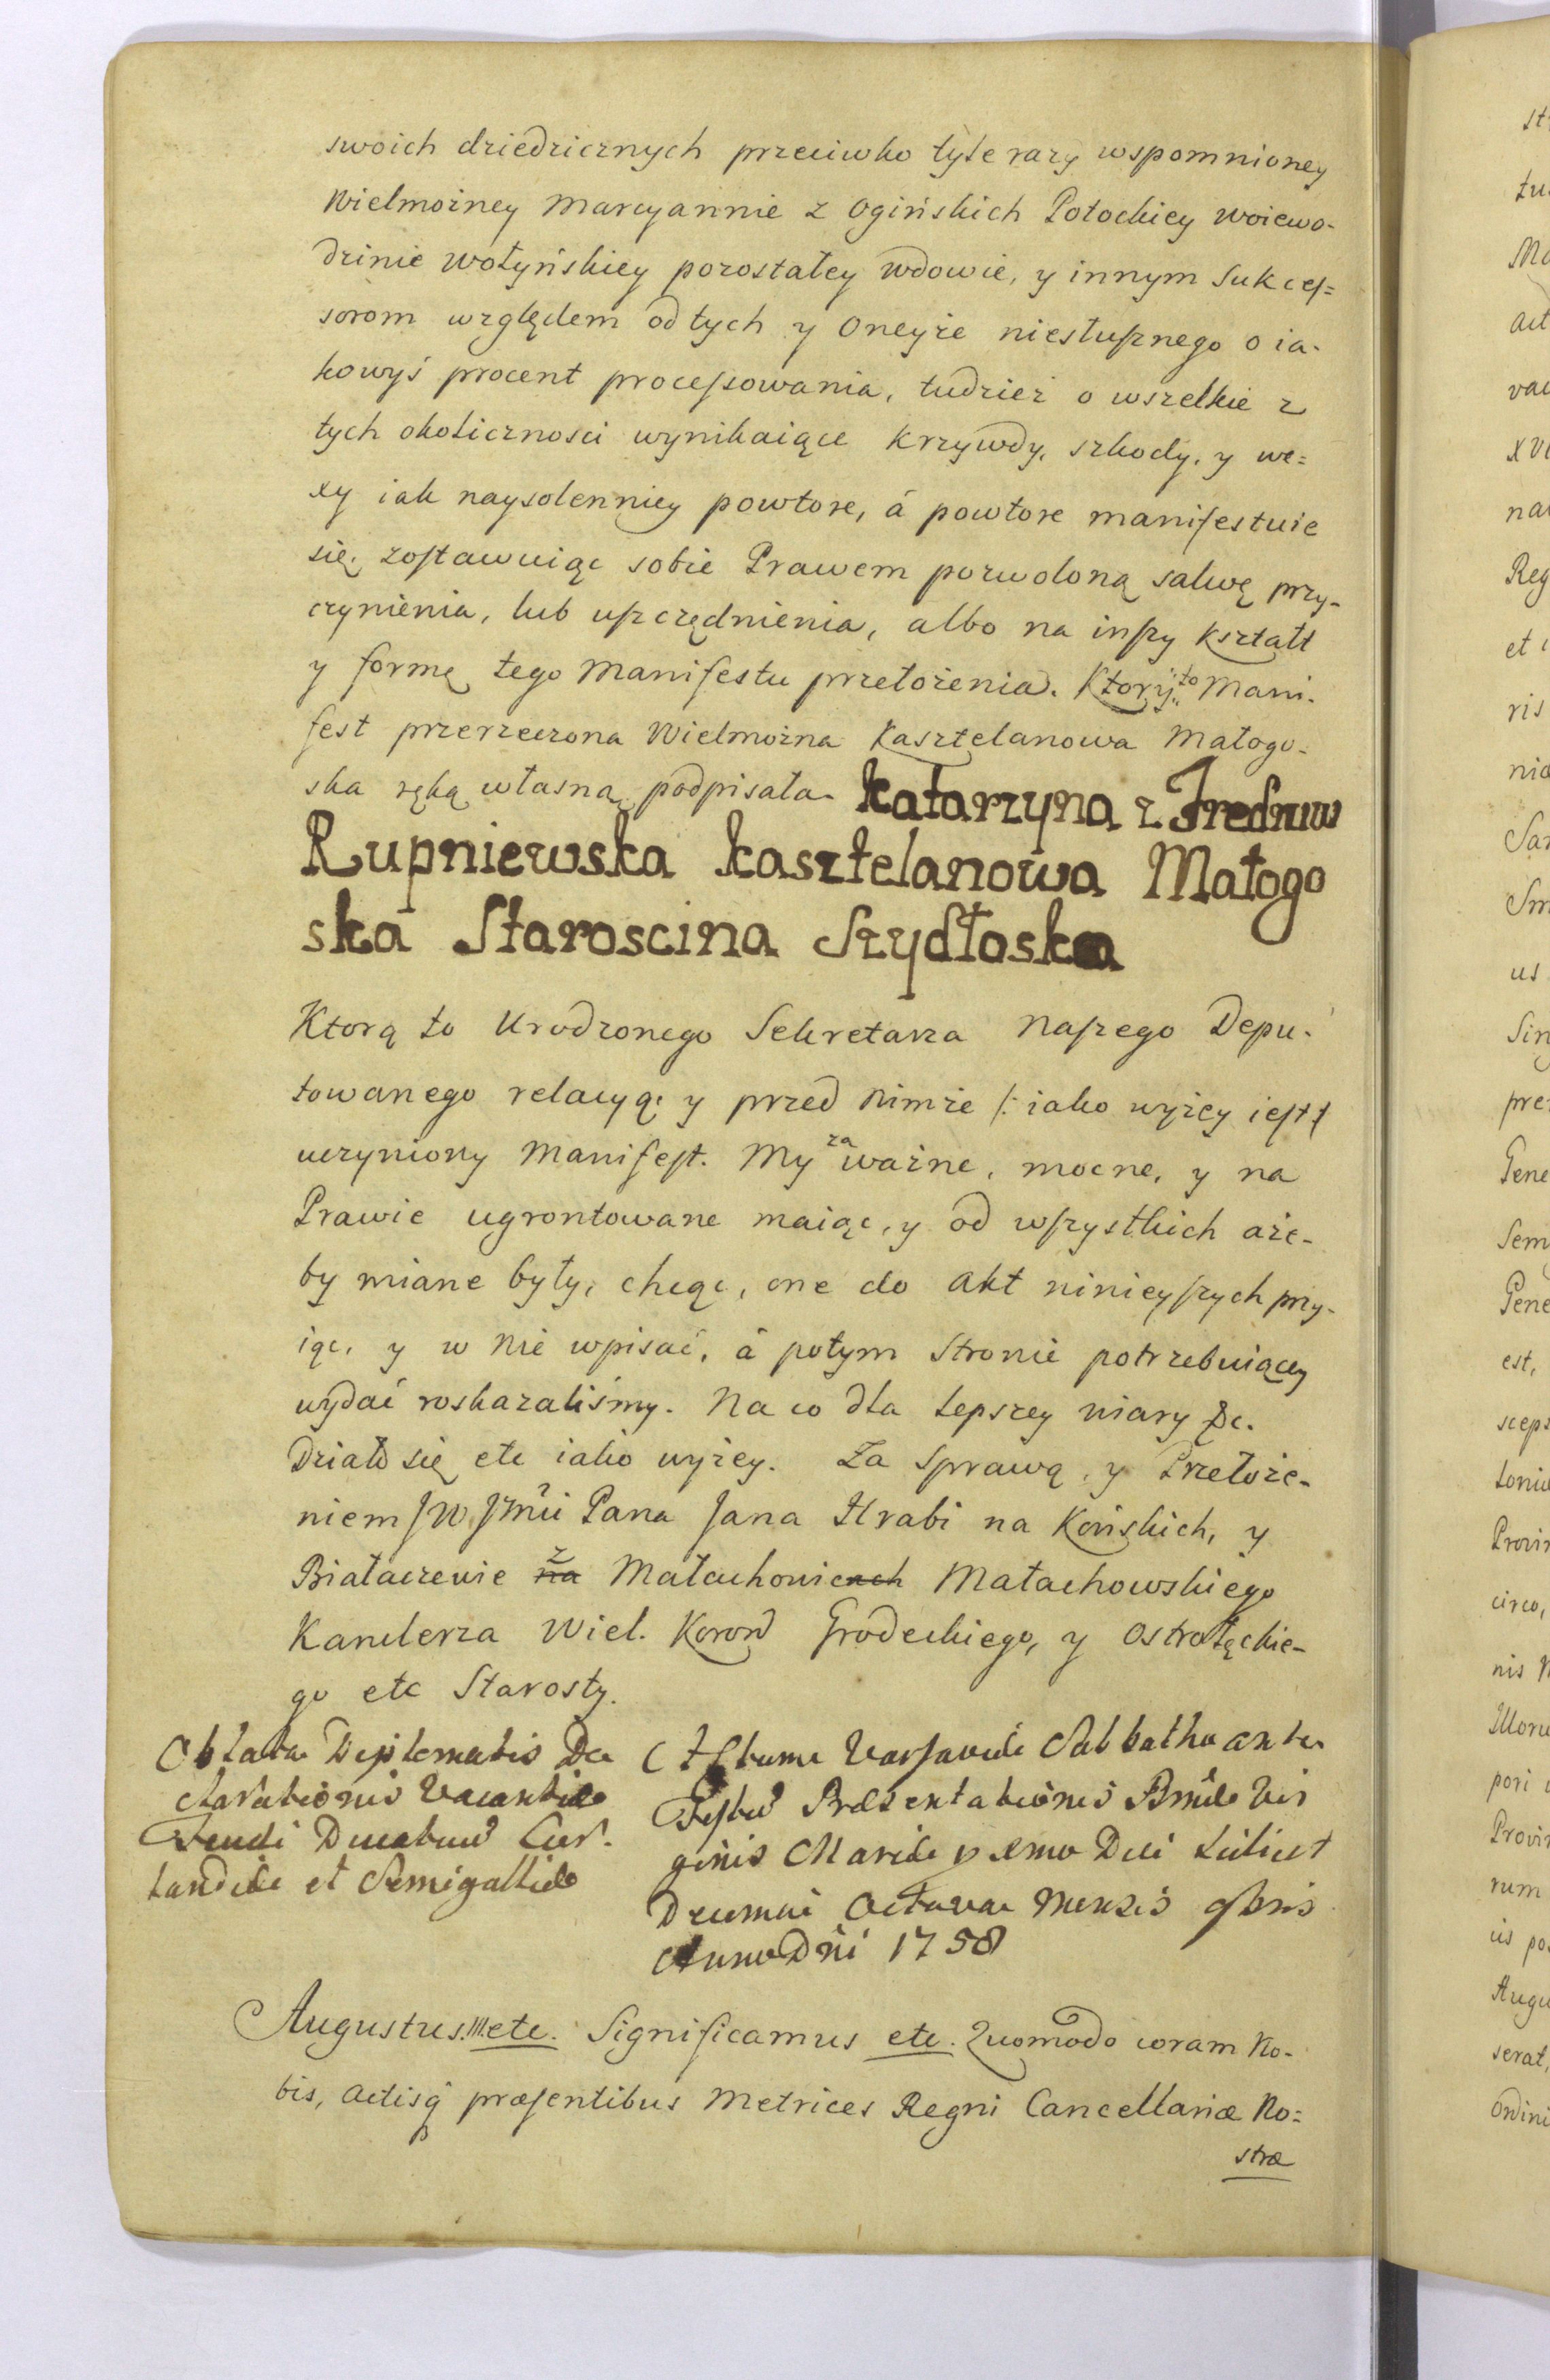 swoich dziedzicznych przeciwko tyle razy wspomnioney
Wielmożney Marcyannie z Ogińskich Potockiey Woiewo-
dzinie Wołyńskiey pozostałey Wdowie, y innym Sukces=
sorom względem od tych y Oneyże niesłusznego o ia-
kowyś procent processowania, tudzież o wszelkie z
tych okolicznosci wynikaiące krzywdy, szkody, y we=
xy iak naysolenniey powtore, á powtore manifestuie
się, zostawuiąc sobie Prawem pozwoloną salwę przy-
czynienia, lub uszczędnienia, albo na inszy kształt
y formę tego Manifestu przełożenia. Ktory to Mani-
fest przerzeczona Wielmożna Kasztelanowa Małogo-
ska ręką własną podpisała. Katarzyna z Fredruw
Rupniewska kasztelanowa Małogo
ska Staroscina Szydłoska
Ktorą to Urodzonego Sekretarza Naszego Depu-
towanego relacyą y przed Nimże /: iako wyżey iest :/
uczyniony Manifest. My za ważne, mocne, y na
Prawie ugrontowane maiąc, y od wszystkich aże-
by miane były, chcąc, one do Akt ninieyszych przy-
iąc, y w Nie wpisać, á potym Stronie potrzebuiącey
wydać roskazaliśmy. Na co dla lepszey wiary &c.
Działo się etc iako wyżey. Za Sprawą, y Przełoże-
niem JW Jmci Pana Jana Hrabi na Końskich, y
Białaczewie na z Małachowicach Małachowskiego
Kanclerza Wiel. Koron Grodeckiego, y Ostrołęckie-
go etc Starosty.
Oblata Diplomatis De
clarationis Vacantiæ
Feudi Ducatuu Cur-
landiæ et Semigalliæ
Actum Varsaviæ Sabbatho ante
Festu Præsentationis Bmæ Vir
ginis Mariæ pxmo Die scilicet
Decima Octava Mensis 9bris
Anno Dni 1758
Augustus III etc. Significamus etc. Quomodo coram No-
bis, Actisq præsentibus Metrices Regni Cancellariæ No=
stræ